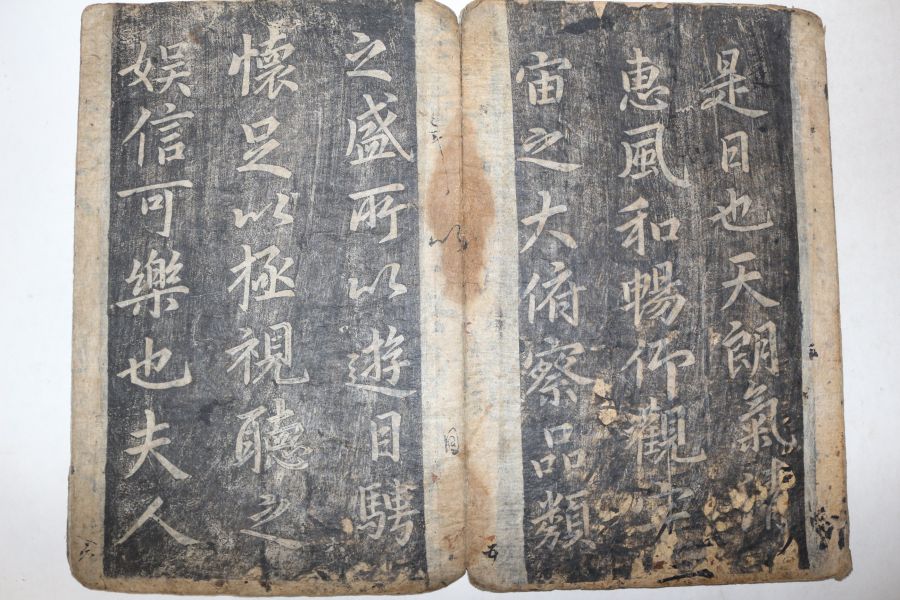 是日也天朗氣清
惠風和暢仰觀宇
宙之大俯察品類
之盛所以遊目騁
懷足以極視聽之
娯信可樂也夫人